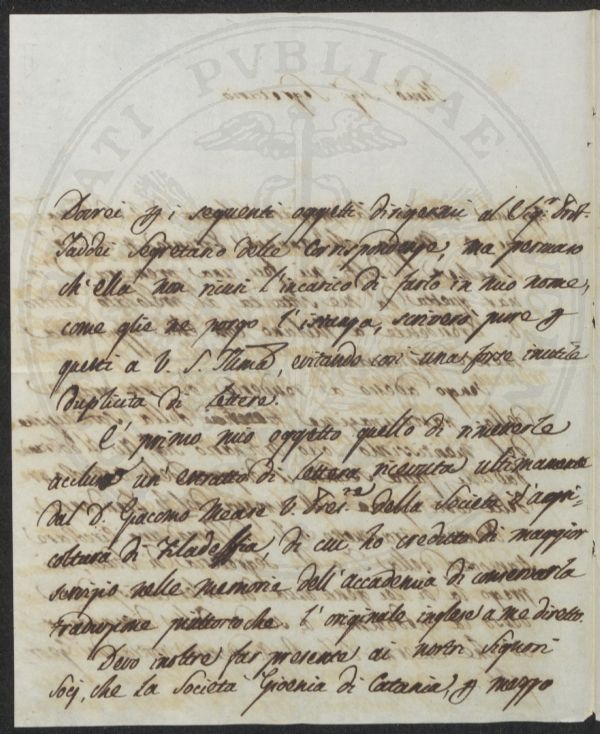 Dovrei p i seguenti oggetti dirigermi al Sig.r Prof.
Taddei Segretario delle Corrispondenze, ma persuaso
ch'ella non ricusi l'incarico di farlo in mio nome,
come glie ne porgo l'istanza, scriverò pure p
questi a V. S. Illma, evitando così una forse inutile
duplicita di Lettere.
È primo mio oggetto quello di rimetterle
acclusa un'estratto di Lettera ricevuta ultimamente
dal D. Giacomo Mease V. Pres.te della Società d'agri-
coltura di Filadelfia, di cui ho creduto di maggior
servizio nelle memorie dell'accademia di conservarla
traduzione piuttostoche l'originale inglese a me diretto.
Devo inoltre far presente ai nostri Signori
Socj, che La Società Gioenia di Catania, p mezzo
PVBLICAE